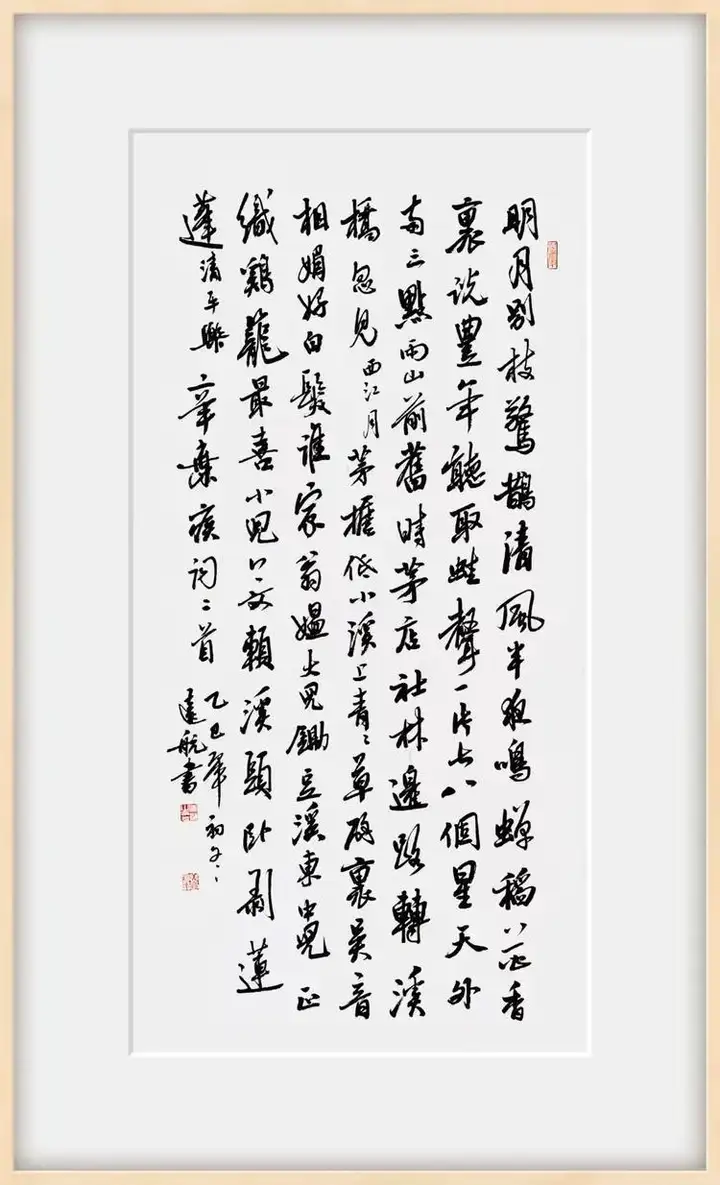 明月别枝驚鵲清風半夜鳴蟬稻花香
裏説豐年聽取蛙聲一片七八個星天外
兩三點雨山前舊時茅店社林邊路轉溪
橋忽見西江月茅檐低小溪上青〻草醉裏吳音
相媚好白髮誰家翁媼大兒鋤豆溪東中兒正
織鷄籠最喜小兒亡賴溪頭卧剥蓮
蓬清平樂辛棄疾詞二首
乙巳年初冬
遠航書